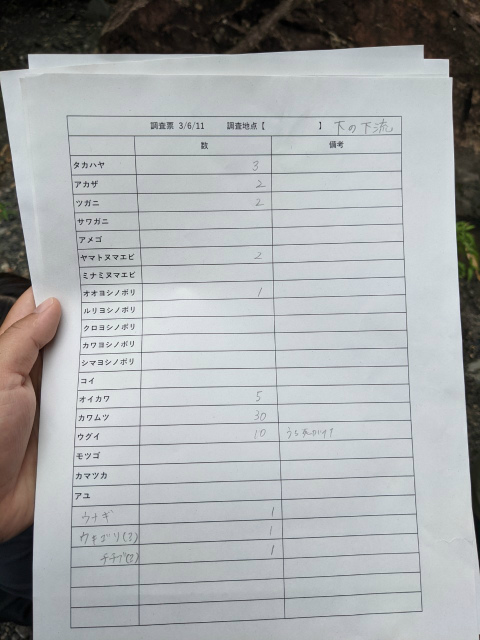 調査票 3/6/11 調査地点【 】 下の下流
数 備考
タカハヤ 3
アカザ 2
ツガニ 2
サワガニ
アメゴ
ヤマトヌマエビ 2
ミナミヌマエビ
オオヨシノボリ 1
ルリヨシノボリ
クロヨシノボリ
カワヨシノボリ
シマヨシノボリ
コイ
オイカワ 5
カワムツ 30
ウグイ 10
モツゴ
カマツカ
アユ
ウナギ 1
ウキゴリ(?) 1
チチブ(?) 1